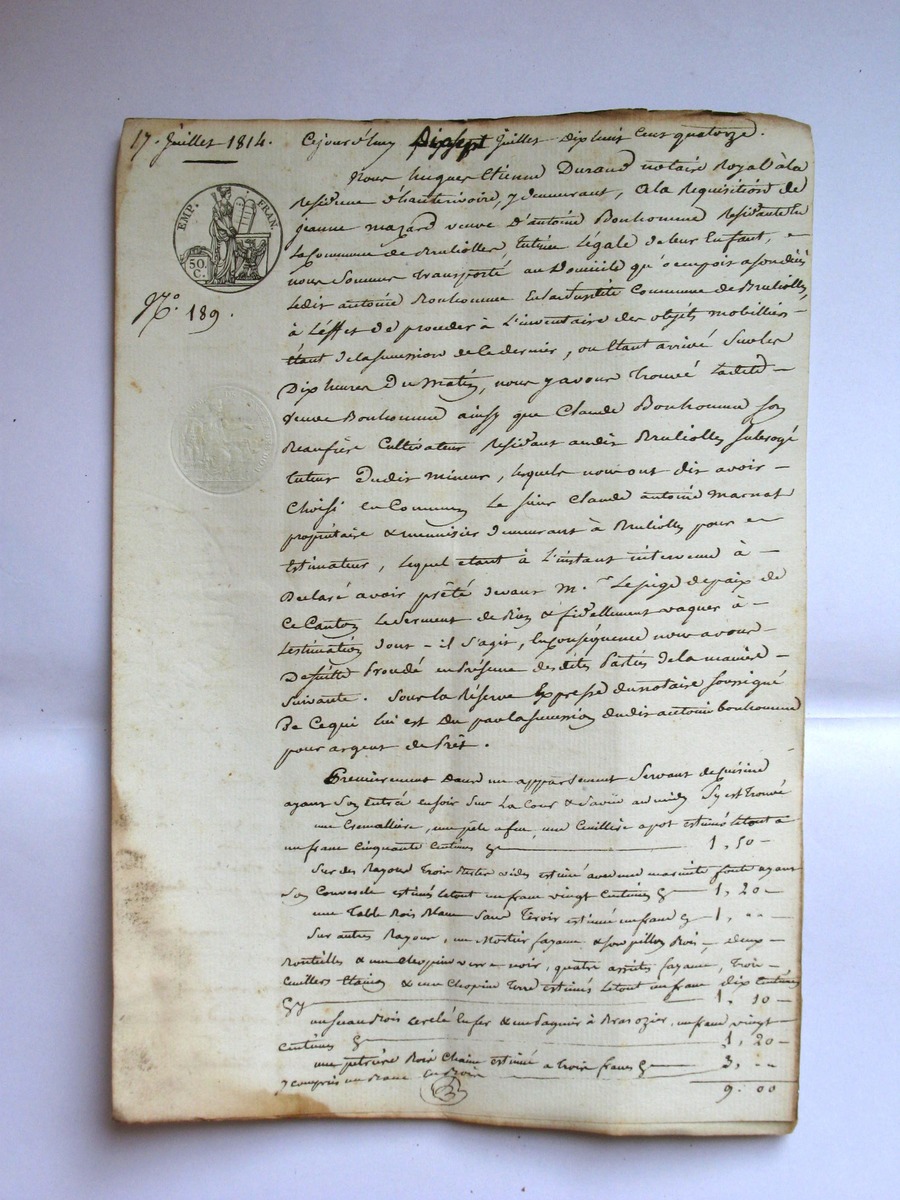 17. Juillet 1814.
Cejourd'huy Dixsept Juillet Dix huit Cent quatorze.
EMP. FRAN.
50 C.
N.° 189.
Nous hugues Etienne Durand notaire Royal à la
Residence d'hauterivoire, y demeurant, a la Requisition de
jeanne mazard veuve D'antoine Bonhomme Residante en
La Commune de Bruliolles, Tutrice Légale de leur Enfant,
nous Sommes Transporté au Domicile qu'occupoit a son décès
Ledit antoine Bonhomme En la susditte Commune de Bruliolles,
à L'effet de proceder à L'inventaire des objets mobilliers
Etant de la succession de Ce dernier, ou Etant arrivé Sur les
Dix heures Du Matin, nous y avons Trouvé Ladite
veuve Bonhomme ainsy que Claude Bonhomme son
Beaufrère Cultivateur Residant audit Bruliolles subrogé
tuteur Dudit mineur, lesquels nous ont dit avoir
Choisi en Commun Le sieur Claude antoine marnat
propriétaire & menuisier demeurant à Bruliolles pour
Estimateur, Lequel etant à L'instant intervenu à
Declaré avoir prêté devant M. Le juge de paix de
Ce Canton Le Serment de Bien & fidellement vaquer à
L'estimation dont il s'agit, En conséquence nous avons
De suitte Procédé en Présence des dites Parties de la manière
Suivante. Sous la Réserve Expresse du notaire soussigné
De Ce qui lui est Du par la succession dudit antoine bonhomme
pour argent de Prêt.
Premierement Dans un appartement Servant de cuisine
ayant Son Entrée en soir Sur La Cour & au midy S'y est Trouvé
une Cremallière, une pèle a feu, une Cuillière a pot estimés le tout a
un franc Cinquante Centimes 1, 50
Sur des Rayons Trois vides estimé avec une marmite fonte ayant
Son Couvercle estimés le tout un franc vingt Centimes 1, 20
une Table Bois Blanc Sans Tiroir estimée un franc 1, "
Sur autres Rayons, un Mortier fayance & son pillon Bois, deux
Bouteilles & une chopine verre noir, quatre assiettes fayance, Trois
Cuillers Etain & une Chopine Terre estimés Le tout un franc dix Centimes
1, 10
un seau Bois cerclé en fer & un un franc vingt
Centimes 1, 20
une petrière Bois Chaine estimée a Trois francs 3, "
y compris un Banc en Bois
9. 00